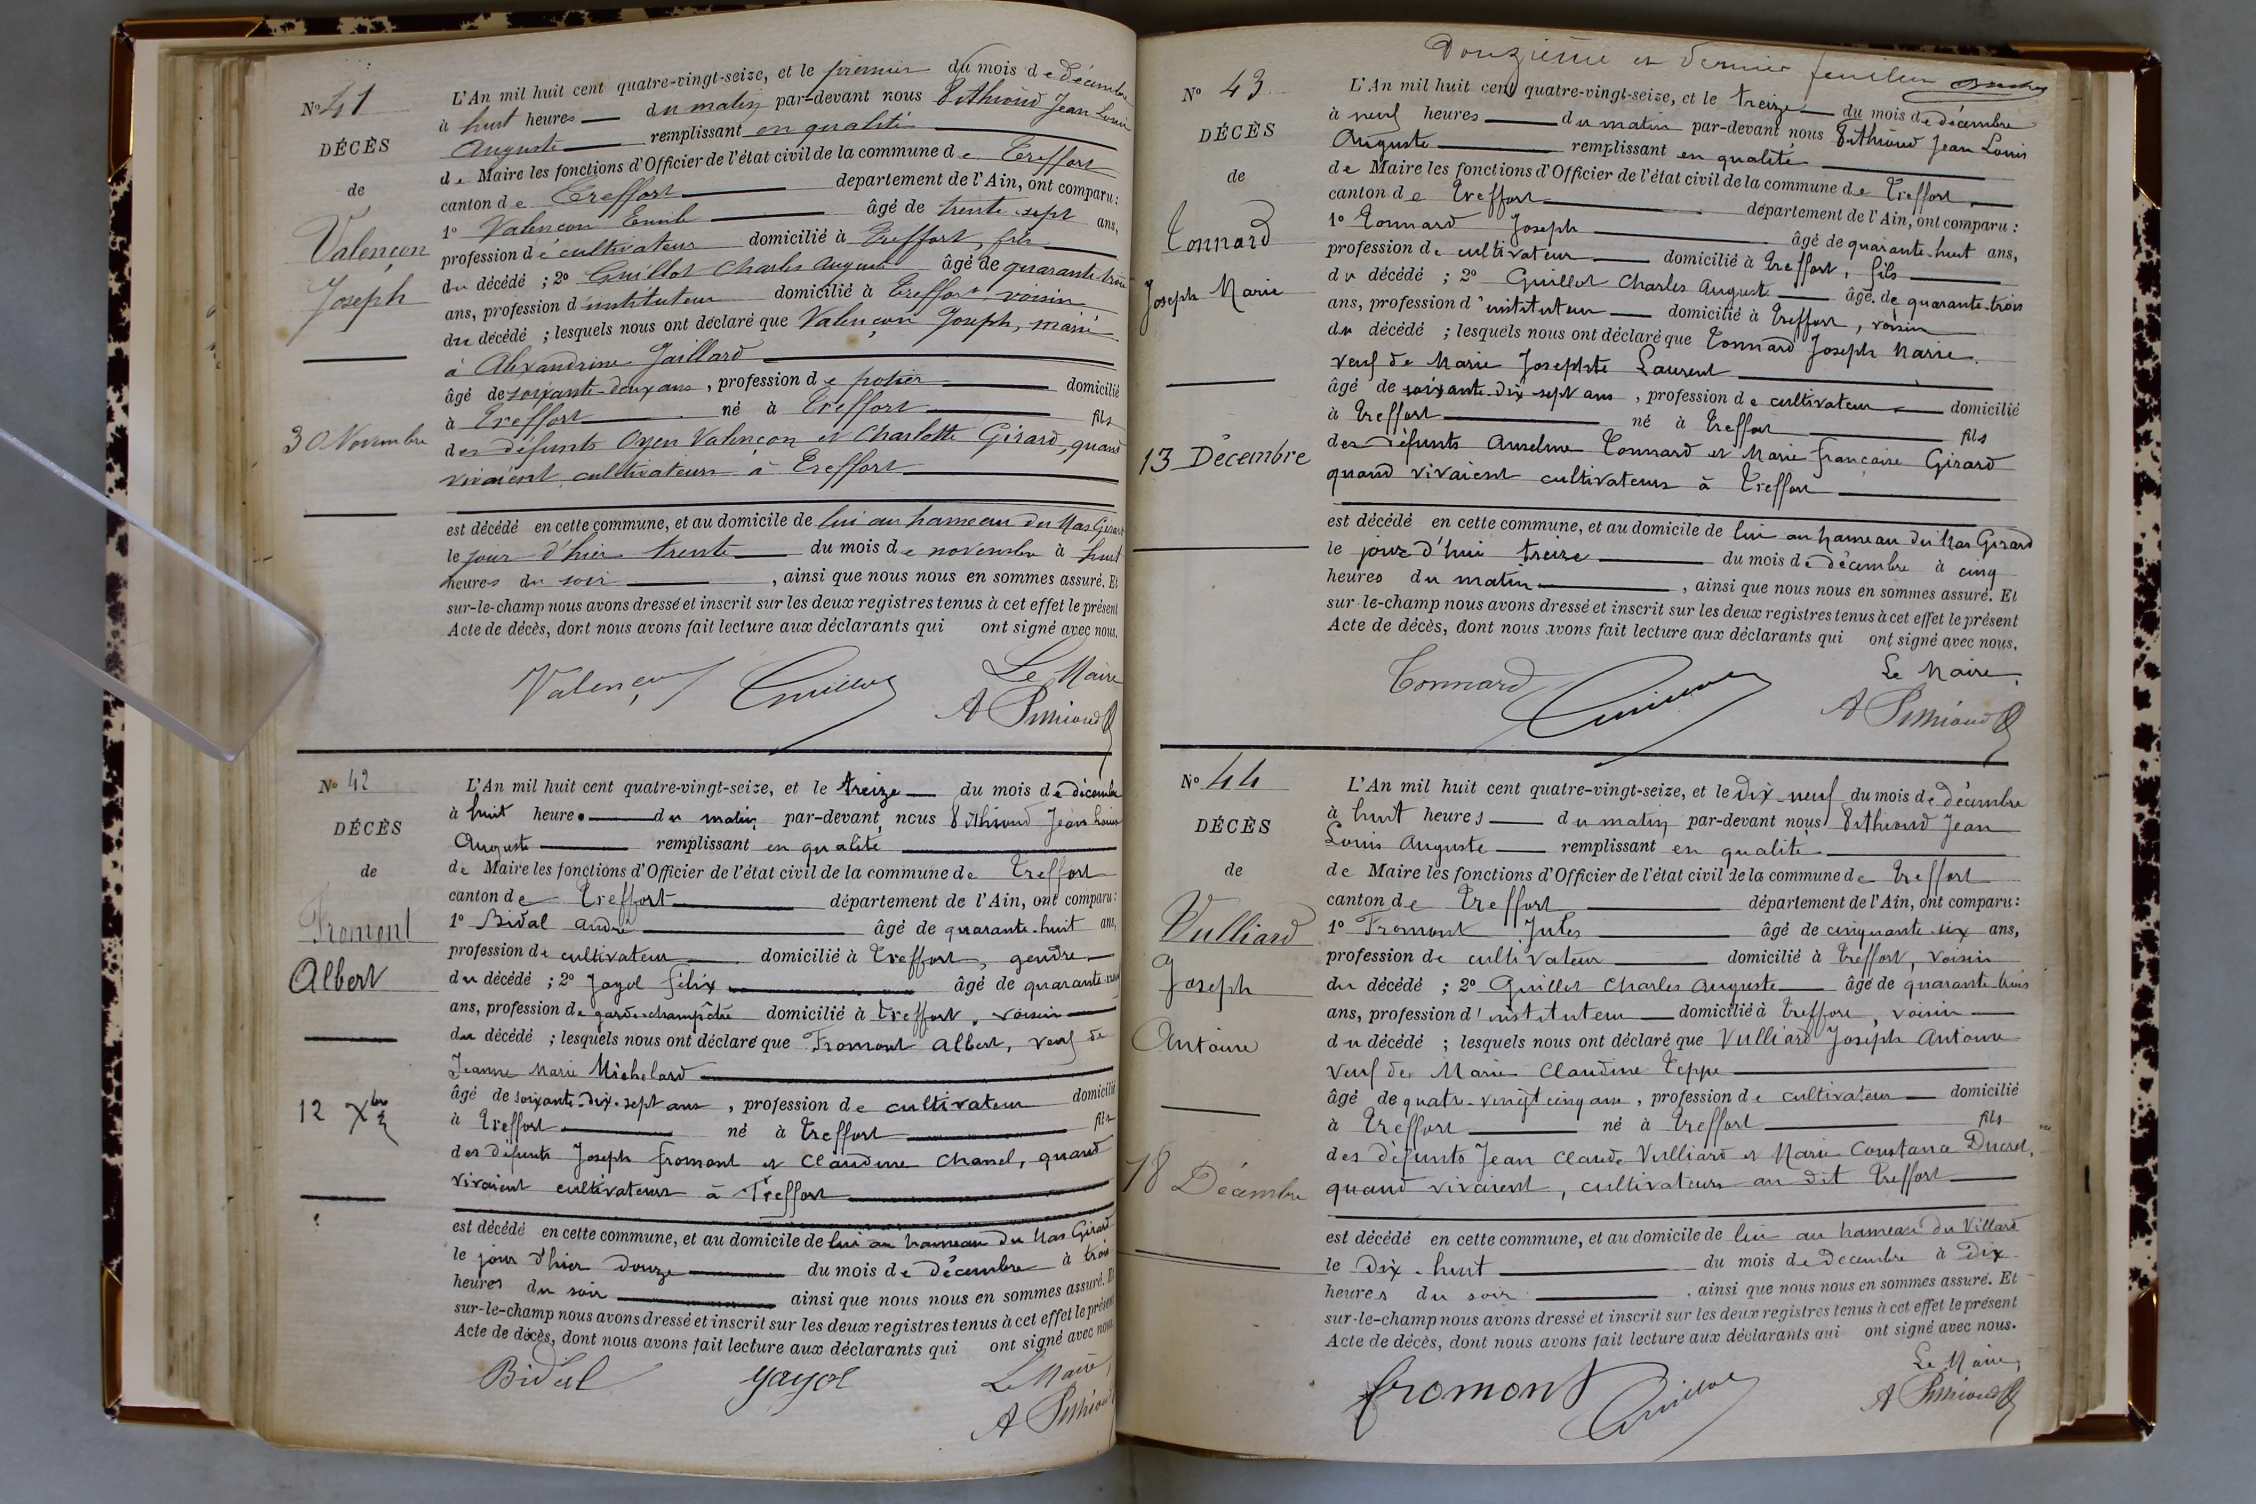 N° 41
DÉCÈS
de
Valençon
Joseph
30 Novembre
L'An mil huit cent quatre-vingt-seize, et le premier du mois de décembre
à huit heures du matin par-devant nous Pithioud Jean Louis
Auguste remplissant en qualité
de Maire les fonctions d'Officier de l'état civil de la commune de Treffort
canton de Treffort departement de l'Ain, ont comparu:
1° Valençon Emile âgé de trente-sept ans,
profession de cultivateur domicilié à Treffort, fils
du décédé ; 2° Guillot Charles Auguste âgé de quarante-trois
ans, profession d'instituteur domicilié à Treffort, voisin
du décédé ; lesquels nous ont déclaré que Valençon Joseph, marié
à Alexandrine Jaillard
âgé de soixante-deux ans, profession de potier domicilié
à Treffort né à Treffort fils
des défunts Oyen Valençon et Charlotte Girard, quand
vivaient cultivateurs à Treffort
est décédé en cette commune, et au domicile de lui au hameau du Mas Girard
le jour d'hier trente du mois de novembre à huit
heures du soir , ainsi que nous nous en sommes assuré. Et
sur-le-champ nous avons dressé et inscrit sur les deux registres tenus à cet effet le présent
Acte de décès, dont nous avons fait lecture aux déclarants qui ont signé avec nous.
Valençon Guillot Le Maire
A Pithioud
N° 42
DÉCÈS
de
Fromont
Albert
12 Xbre
L'An mil huit cent quatre-vingt-seize, et le treize du mois de décembre
à huit heures du matin par-devant nous Pithioud Jean Louis
Auguste remplissant en qualité
de Maire les fonctions d'Officier de l'état civil de la commune de Treffort
canton de Treffort département de l'Ain, ont comparu:
1° Bidal André âgé de quarante-huit ans,
profession de cultivateur domicilié à Treffort, gendre
du décédé ; 2° Jayol Félix âgé de quarante-neuf
ans, profession de garde-champêtre domicilié à Treffort, voisin
du décédé ; lesquels nous ont déclaré que Fromont Albert, veuf de
Jeanne Marie Michelard
âgé de soixante-dix-sept ans, profession de cultivateur domicilié
à Treffort né à Treffort fils
des défunts Joseph Fromont et Claudine Chanel, quand
vivaient cultivateurs à Treffort
est décédé en cette commune, et au domicile de lui au hameau du Mas Girard
le jour d'hier douze du mois de décembre à trois
heures du soir ainsi que nous nous en sommes assuré. Et
sur-le-champ nous avons dressé et inscrit sur les deux registres tenus à cet effet le présent
Acte de décès, dont nous avons fait lecture aux déclarants qui ont signé avec nous.
Bidal Jayol Le Maire,
A Pithioud
Douzième et dernier feuillet
N° 43
DÉCÈS
de
Tonnard
Joseph Marie
13 Décembre
L'An mil huit cent quatre-vingt-seize, et le treize du mois de décembre
à neuf heures du matin par-devant nous Pithioud Jean Louis
Auguste remplissant en qualité
de Maire les fonctions d'Officier de l'état civil de la commune de Treffort,
canton de Treffort département de l'Ain, ont comparu :
1° Tonnard Joseph âgé de quarante-huit ans,
profession de cultivateur domicilié à Treffort, fils
du décédé ; 2° Guillot Charles Auguste âgé de quarante-trois
ans, profession d'instituteur domicilié à Treffort, voisin
du décédé ; lesquels nous ont déclaré que Tonnard Joseph Marie.
veuf de Marie Josephte Laurent
âgé de soixante-dix-sept ans, profession de cultivateur domicilié
à Treffort né à Treffort fils
des défunts Anselme Tonnard et Marie Françoise Girard
quand vivaient cultivateurs à Treffort
est décédé en cette commune, et au domicile de lui au hameau du Mas Girard
le jour d'hui treize du mois de décembre à cinq
heures du matin , ainsi que nous nous en sommes assuré. Et
sur-le-champ nous avons dressé et inscrit sur les deux registres tenus à cet effet le présent
Acte de décès, dont nous avons fait lecture aux déclarants qui ont signé avec nous.
Tonnard Guillot Le Maire,
A Pithioud
N° 44
DÉCÈS
de
Vulliard
Joseph
Antoine
18 Décembre
L'An mil huit cent quatre-vingt-seize, et le dix neuf du mois de décembre
à huit heures du matin par-devant nous Pithioud Jean
Louis Auguste remplissant en qualité
de Maire les fonctions d'Officier de l'état civil de la commune de Treffort
canton de Treffort département de l'Ain, ont comparu:
1° Fromont Jules âgé de cinquante-six ans,
profession de cultivateur domicilié à Treffort, voisin
du décédé ; 2° Guillot Charles Auguste âgé de quarante-trois
ans, profession d'instituteur domicilié à Treffort, voisin
du décédé ; lesquels nous ont déclaré que Vulliard Joseph Antoine
veuf de Marie Claudine Teppe
âgé de quatre-vingt cinq ans, profession de cultivateur domicilié
à Treffort né à Treffort fils
des défunts Jean Claude Vulliard et Marie Constance Ducret,
quand vivaient, cultivateurs au dit Treffort
est décédé en cette commune, et au domicile de lui au hameau du Villard
le dix-huit du mois de décembre à dix
heures du soir , ainsi que nous nous en sommes assuré. Et
sur-le-champ nous avons dressé et inscrit sur les deux registres tenus à cet effet le présent
Acte de décès, dont nous avons fait lecture aux déclarants qui ont signé avec nous.
Fromont Guillot Le Maire,
A Pithioud